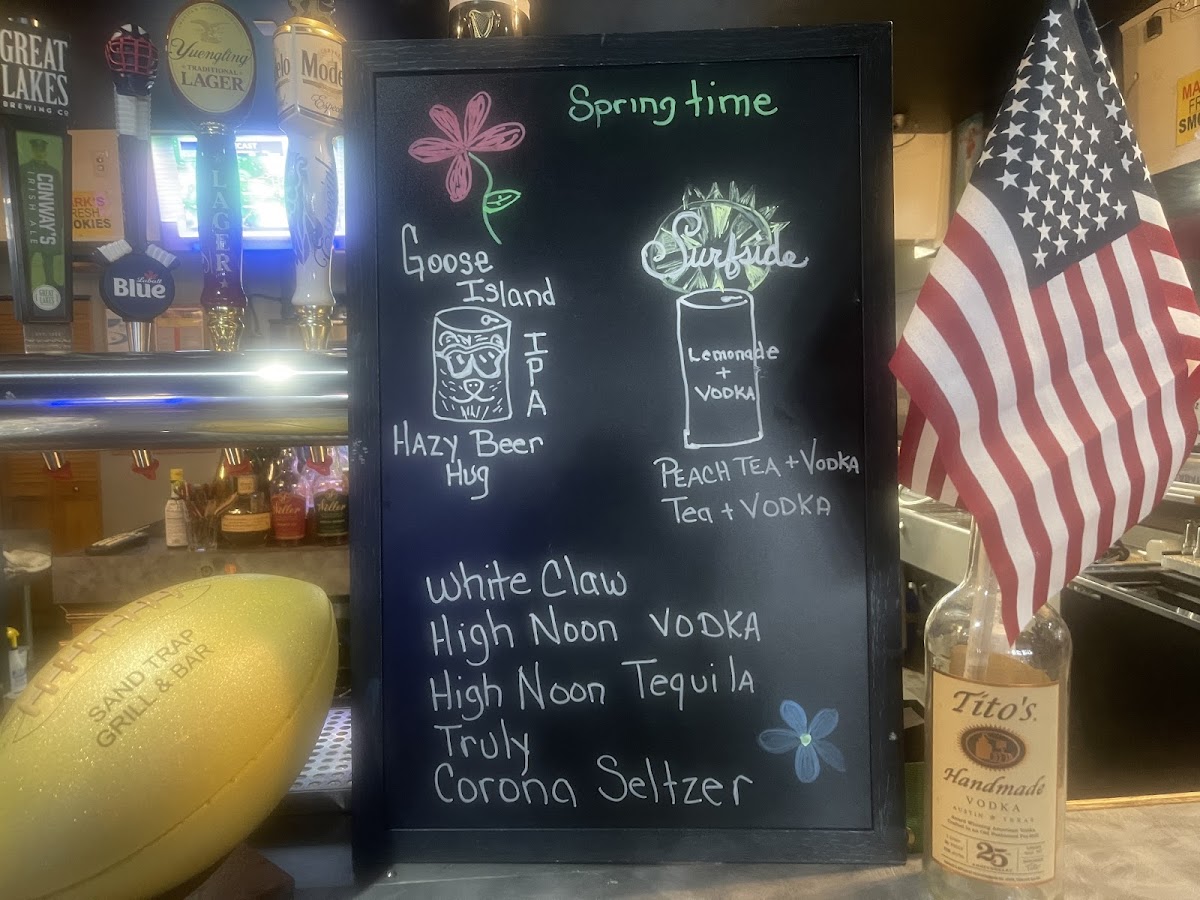 GREAT
LAKES
BREWING CO
CONWAY'S
IRISH ALE
GREAT
LAKES
Labatt
Blue
Yuengling
TRADITIONAL
LAGER
LAGER
Modelo
Especial
Springtime
Goose
Island
IPA
HAZY Beer
Hug
Surfside
Lemonade
+
VODKA
PEACH TEA + VODKA
Tea + VODKA
White Claw
High Noon VODKA
High Noon Tequila
Truly
Corona Seltzer
SAND TRAP
GRILL & BAR
Tito's
Handmade
VODKA
AUSTIN ★ TEXAS
25